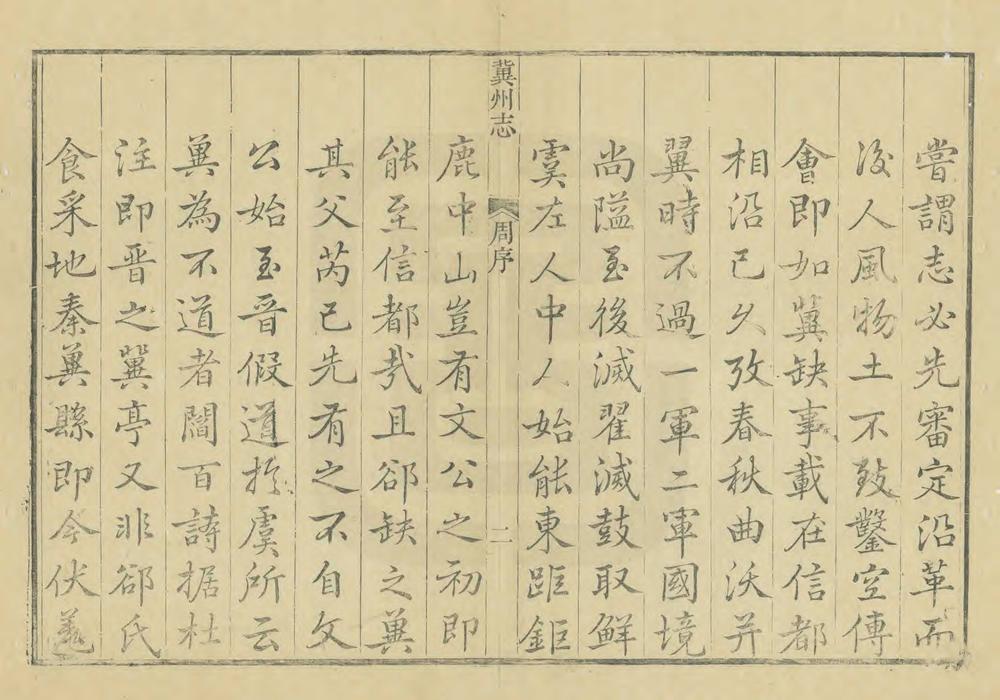 嘗謂志必先審定沿革而
後人風物土不致鑿空傅
會即如兾缺事載在信都
相沿已久攷春秋曲沃并
翼時不過一軍二軍國境
尚隘至後滅翟滅鼓取鮮
虞左人中人始能東距鉅
冀州志 周序 二
鹿中山豈有文公之初即
能至信都㢤且郤缺之兾
其父芮已先有之不自文
公始至晉假道於虞所云
兾為不道者閻百詩据杜
注即晉之冀亭又非郤氏
食采地秦兾縣即今伏羌